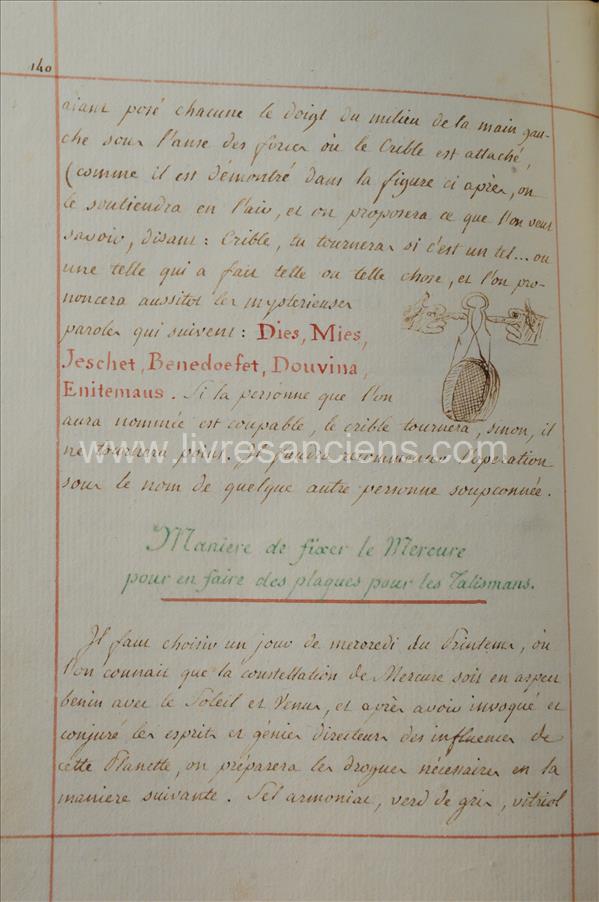 140
aiant posé chacune le doigt du milieu de la main gau-
che sous l'anse des forces où le Crible est attaché,
(comme il est démontré dans la figure ci après, on
le soutiendra en l'air, et on proposera ce que l'on veut
savoir, disant : Crible, tu tourneras si c'est un tel... ou
une telle qui a fait telle ou telle chose, et l'on pro-
noncera aussitot les mysterieuses
paroles qui suivent : Dies, Mies,
Jeschet, Benedoefet, Douvina,
Enitemaus. Si la personne que l'on
aura nommée est coupable, le crible tournera, sinon, il
ne tournera point. Il faudra recommencer l'operation
sous le nom de quelque autre personne soupconnée.
www.livresanciens.com
Maniere de fixer le Mercure
pour en faire des plaques pour les Talismans.
Il faut choisir un jour de mercredi du Printems, où
l'on connait que la constellation de Mercure soit en aspect
benin avec le Soleil et Venus, et après avoir invoqué et
conjuré les esprits et génies directeurs des influences de
cette Planette, on préparera les drogues nécessaires en la
maniere suivante. Sel armoniac, verd de gris, vitriol